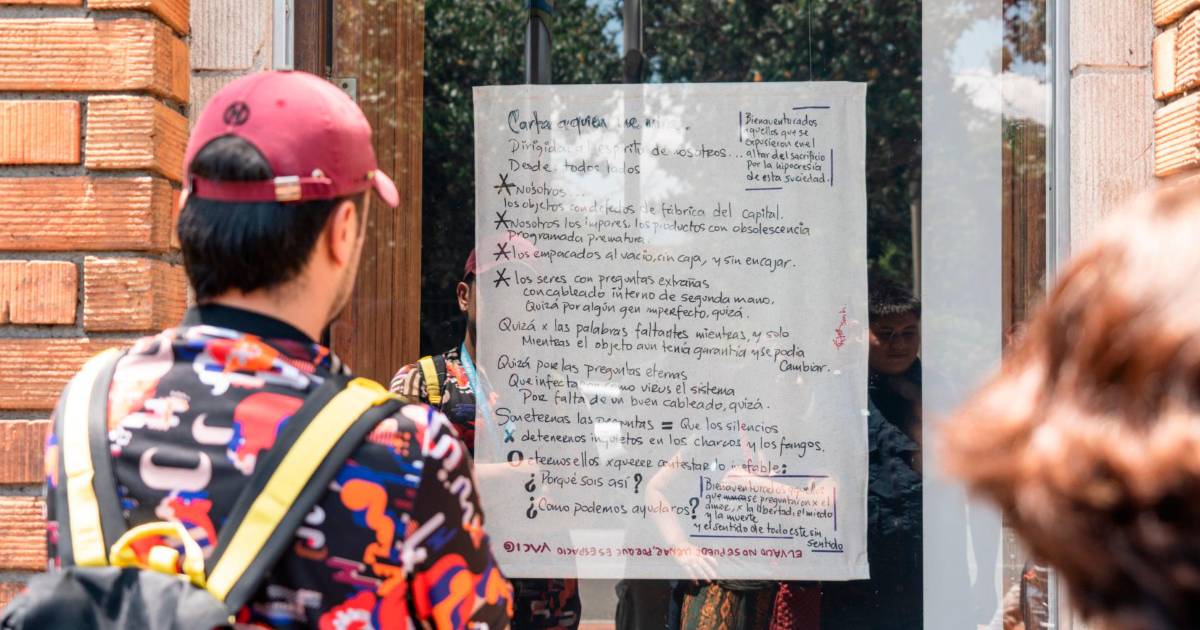 Carta a quien me mira.
Dirigida al espíritu de nosotros...
Desde todos lados
Bienaventurados
aquellos que se
expusieron en el
altar del sacrificio
por la hipocresía
de esta suciedad.
* Nosotros...
los objetos con defectos de fábrica del capital.
* Nosotros los impares, los productos con obsolescencia
programada prematura.
* los empacados al vacio, sin caja, y sin encajar.
* los seres con preguntas extrañas
con cableado interno de segunda mano,
Quizá por algún gen imperfecto, quizá.
Quizá x las palabras faltantes mientras, y solo
Mientras el objeto aun tenía garantía y se podía
Cambiar.
Quizá por las preguntas eternas
Que infectaron como virus el sistema
Por falta de un buen cableado, quizá.
Son eternas las preguntas = Que los silencios
x detenernos inquietos en los charcos y los fangos.
O eternos ellos x querer contestar lo inefable:
¿Porqué sois así?
¿Como podemos ayudaros?
Bienaventurados aquellos
que se preguntaron x el
amor, x la libertad, el miedo
y la muerte
y el sentido de todo este sin
sentido
EL VACIO NO SE PUEDE LLENAR, PORQUE ES ESPACIO VACIO